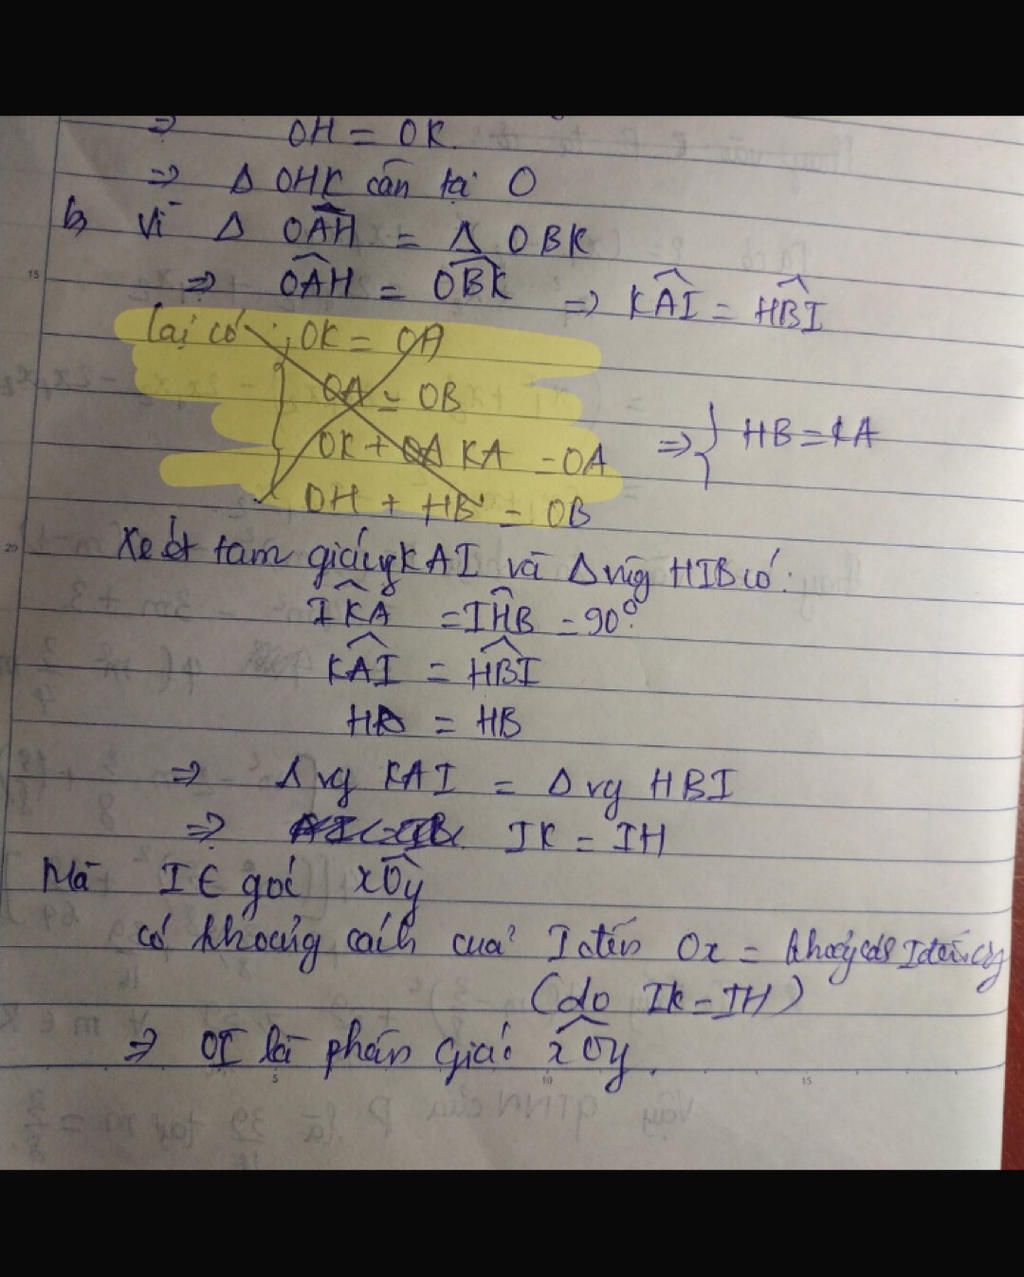 ⇒ OH = OK.
⇒ Δ OHK cân tại O
b, Vì Δ OAH = Δ OBK
⇒ OAH = OBK ⇒ KAI = HBI
Lại có: OK = OA
OA = OB
OK + KA = OA ⇒ HB = KA
OH + HB = OB
Xét tam giác vg KAI và Δ vg HIB có:
IKA = IHB = 90°
KAI = HBI
= HB
⇒ Δ vg KAI = Δ vg HBI
⇒ IK = IH
Mà I ∈ góc xOy
có khoảng cách của I đến Ox = I đến
(do IK = IH)
⇒ OI là phân giác xOy.
15
20
5
10
15